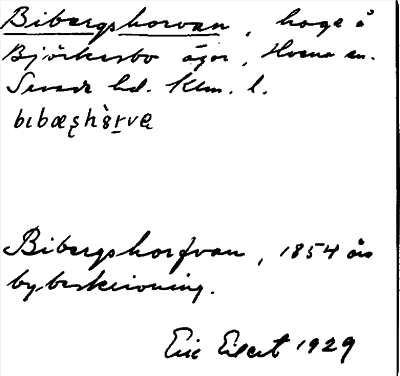 Bibergshorvan, hage å
Björkesbo ägor, Hvena sn.
Sevede hd. Klm. l.
bɩbæʂhòrvę
Bibergshorfvan, 1854 års
bybeskrivning.
Eric Elgert 1929